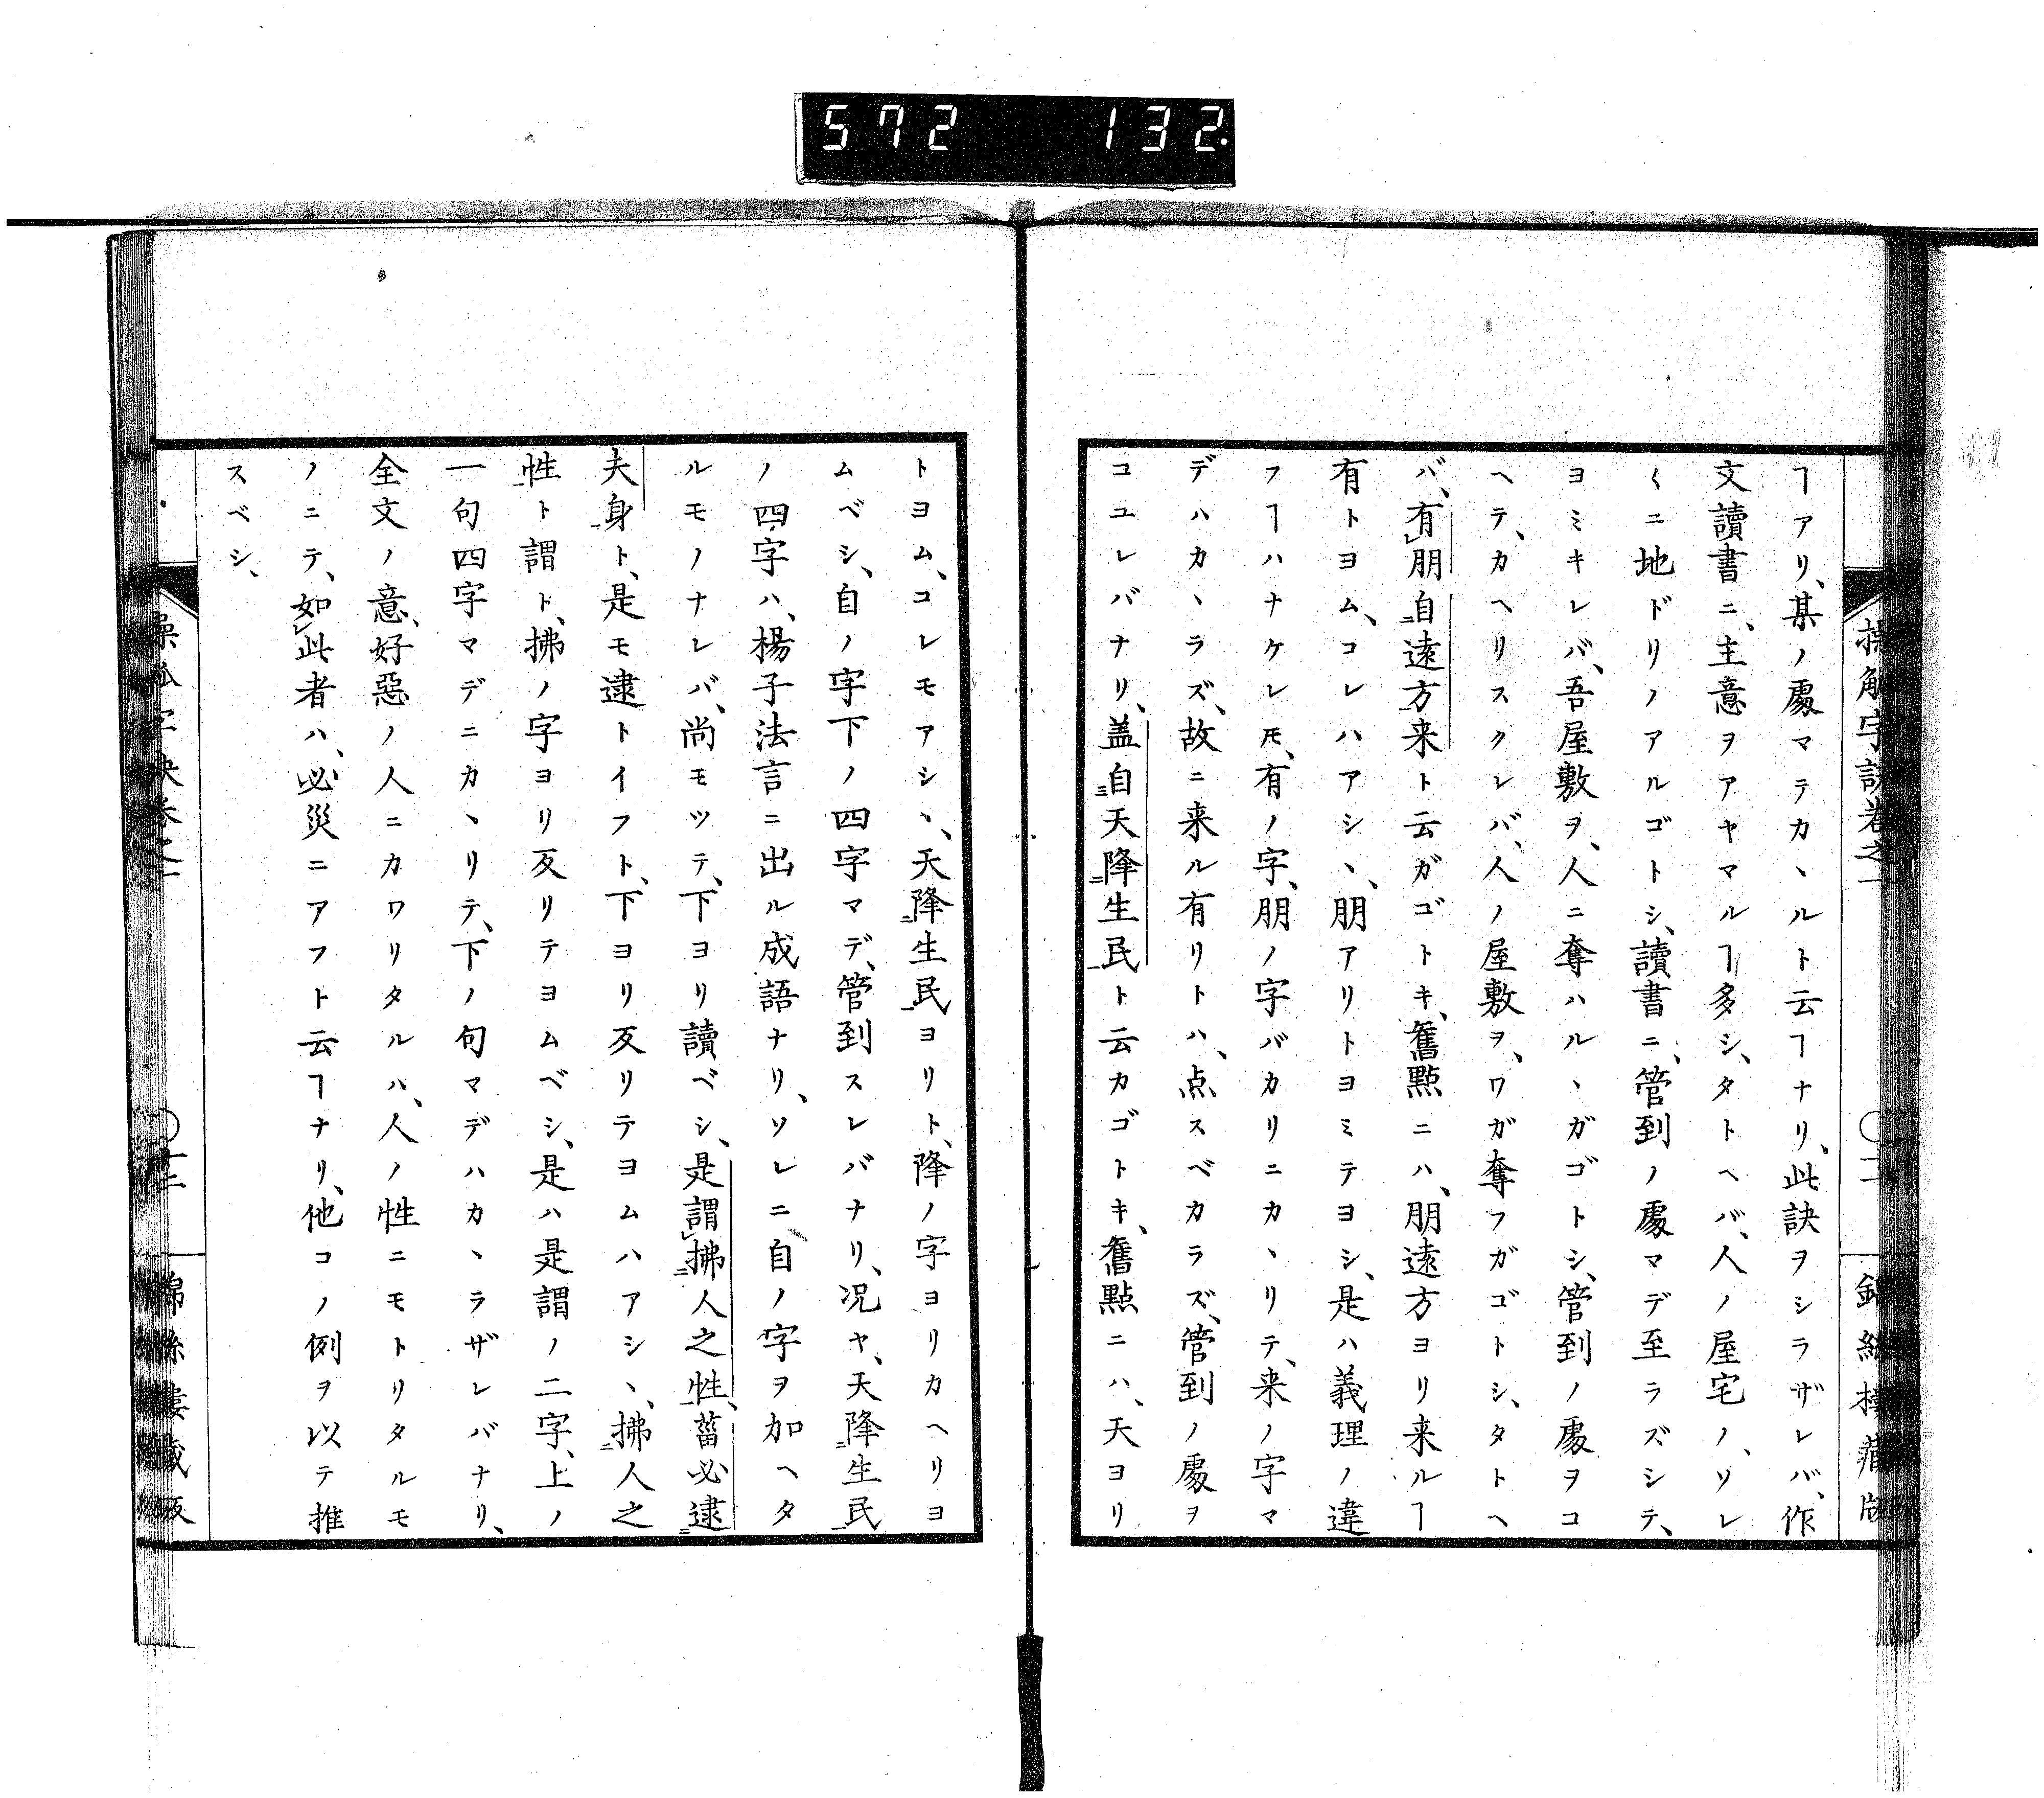 572 132.
ヿアリ、某ノ處マテカヽルト云ヿナリ、此訣ヲシラザレバ、作
文讀書ニ、主意ヲアヤマルヿ多シ、タトヘバ、人ノ屋宅ノ、ソレ
〱ニ地ドリノアルゴトシ、讀書ニ、管到ノ處マデ至ラズシテ、
ヨミキレバ、吾屋敷ヲ、人ニ奪ハルヽガゴトシ、管到ノ處ヲコ
ヘテ、カヘリスクレバ、人ノ屋敷ヲ、ワガ奪フガゴトシ、タトヘ
バ、有㆑朋自㆓遠方㆒来ト云ガゴトキ、舊點ニハ、朋遠方ヨリ来ルヿ
有トヨム、コレハアシヽ、朋アリトヨミテヨシ、是ハ義理ノ違
フヿハナケレㇳモ、有ノ字、朋ノ字バカリニカヽリテ、来ノ字マ
デハカヽラズ、故ニ来ル有リトハ、点スベカラズ、管到ノ處ヲ
コユレバナリ、盖自㆘天降㆓生民㆒ト云カゴトキ、舊點ニハ、天ヨリ
トヨム、コレモアシヽ、天降㆓生民㆒ヨリト、降ノ字ヨリカヘリヨ
ムベシ、自ノ字下ノ四字マデ、管到スレバナリ、况ヤ、天降㆓生民㆒
ノ四字ハ、楊子法言ニ出ル成語ナリ、ソレニ自ノ字ヲ加ヘタ
ルモノナレバ、尚モツテ、下ヨリ讀ベシ、是謂㆑拂㆓人之性㆒、菑必逮㆓
夫身㆒ト、是モ逮トイフト、下ヨリ反リテヨムハアシヽ、拂㆓人之
性㆒ト謂ト、拂ノ字ヨリ反リテヨムベシ、是ハ是謂ノ二字、上ノ
一句四字マデニカヽリテ、下ノ句マデハカヽラザレバナリ、
全文ノ意、好惡ノ人ニカワリタルハ、人ノ性ニモトリタルモ
ノニテ、如㆑此者ハ、必災ニアフト云ヿナリ、他コノ例ヲ以テ推
スベシ、